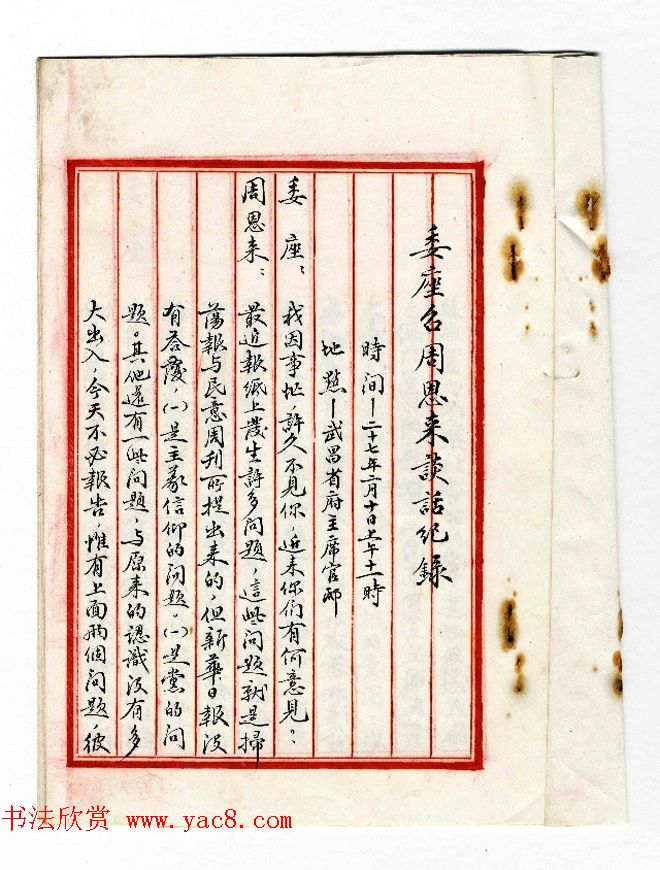 委座召周恩来談話纪錄
時間—二十七年二月十日上午十一時
地點—武昌省府主席官邸
委座：我因事忙，許久不見你，近来你们有何意見？
周恩来：最近報紙上發生許多问題，這些问題就是掃
蕩報与民意周刋所提出来的，但新華日報没
有答覆，(一)是主義信仰的问題，(一)是黨的问
題。其他還有一些问題，与原来的認識没有多
大出入，今天不必報告，惟有上面兩個问題，彼
书法欣赏 www.yac8.com